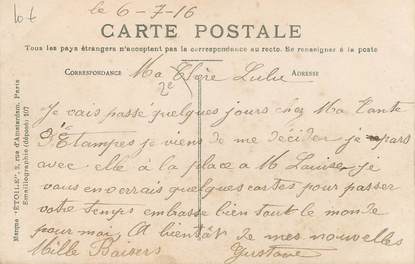 lot
le 6-7-16
CARTE POSTALE
Tous les pays étrangers n'acceptent pas la correspondance au recto. Se renseigner à la poste
CORRESPONDANCE
ADRESSE
Ma Chère Lulu
Je vais passé quelques jours chez Ma Tante
d'Etampes je viens de me décider je pars
avec elle à la place a M Louise je
vous enverrais quelques cartes pour passer
votre temps embrasse bien tout le monde
pour moi, A bientôt de mes nouvelles
Mille Baisers
Gustave
Marque "ÉTOILE", 3, rue d'Amsterdam, Paris
Émaillographie (déposé)